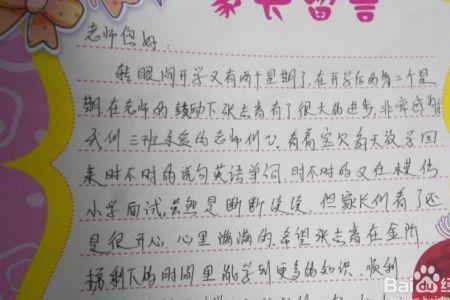 家长留言
老师您好：
转眼间开学又有两个星期了，在开学后的第二个星
期，在老师的鼓励下张志育有了很大的进步，非常感谢
我们三班亲爱的老师们
看着宝贝每天放学回
来时不时的说句英语单词，时不时的又在模仿
小学面试，虽然是断断续续，但家长们看了还
是很开心，心里满满的，希望张志育在金所
猪剩下的时间里能学到更多的知识，顺利
Bai